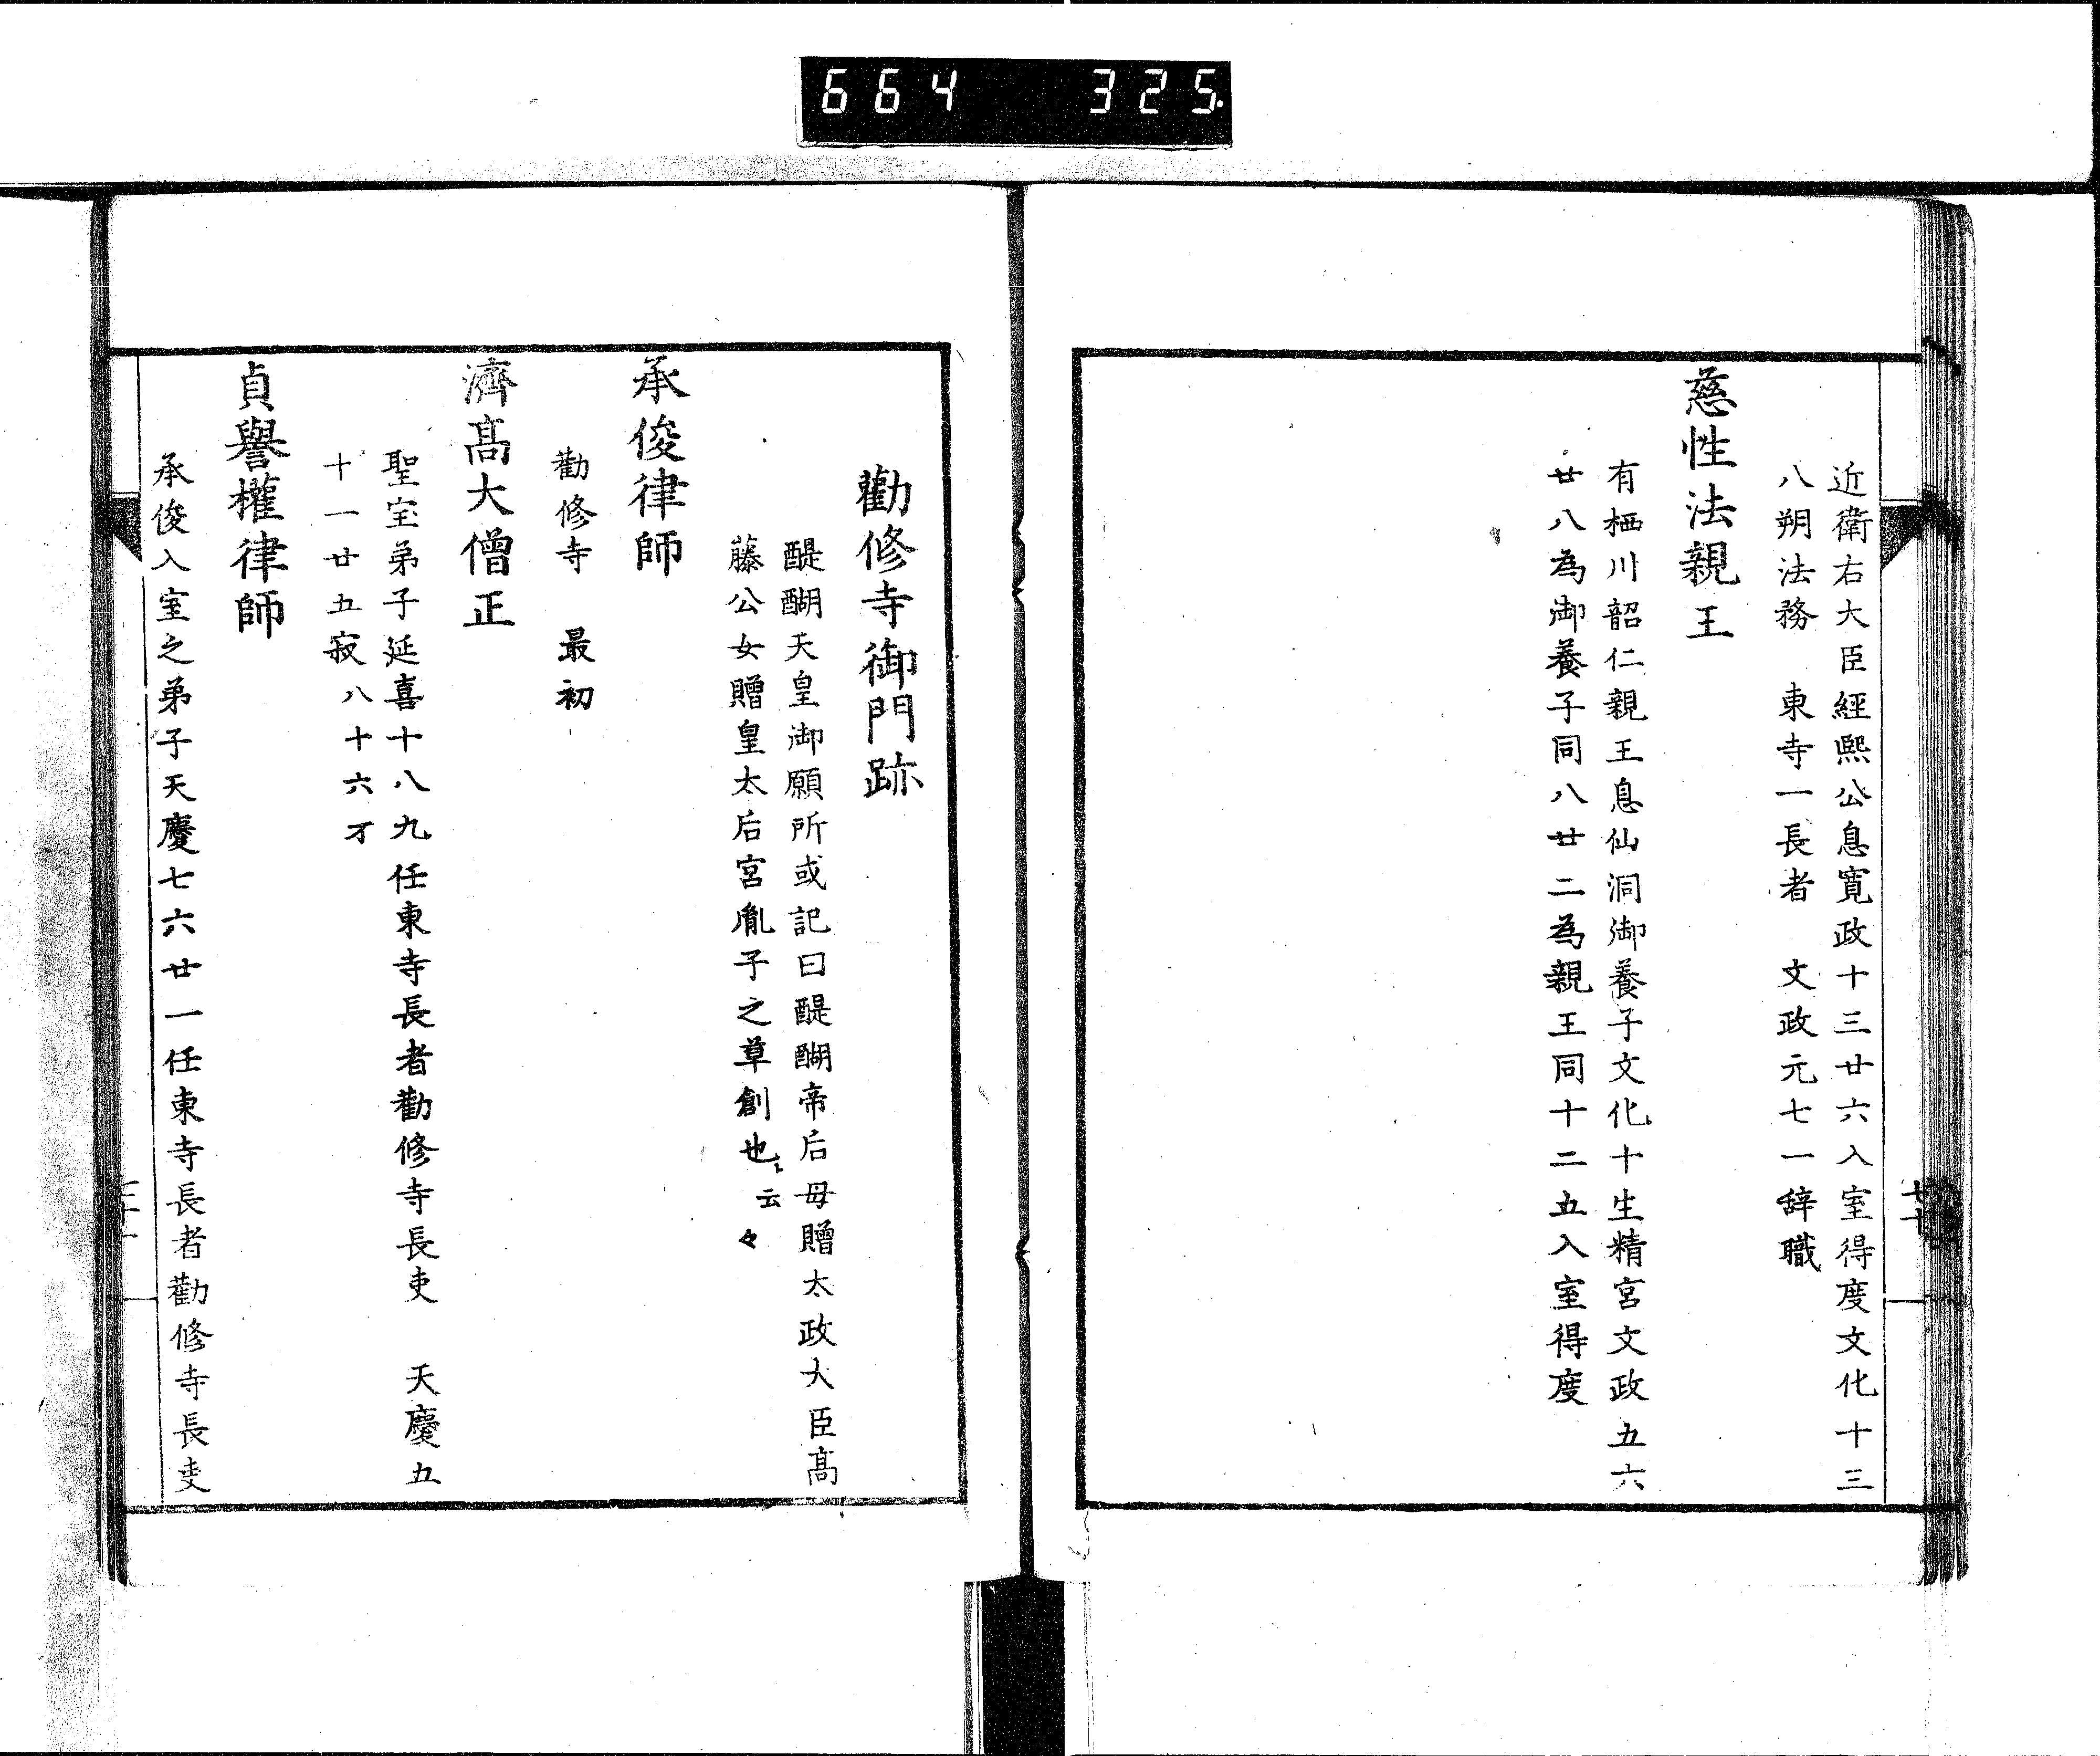 664 325.
近衛右大臣經熙公息寛政十三廿六入室得度文化十三
八朔法務 東寺一長者 文政元七一辞職
慈性法親王
有栖川韶仁親王息仙洞御養子文化十生精宮文政五六
廿八為御養子同八廿二為親王同十二五入室得度
七十
勸修寺御門跡
醍醐天皇御願所或記曰醍醐帝后母贈太政大臣髙
藤公女贈皇太后宮胤子之草創也云々
承俊律師
勸修寺 最初
濟髙大僧正
聖宝弟子延喜十八九任東寺長者勸修寺長吏 天慶五
十一廿五寂八十六才
貞譽權律師
承俊入室之弟子天慶七六廿一任東寺長者勸修寺長吏